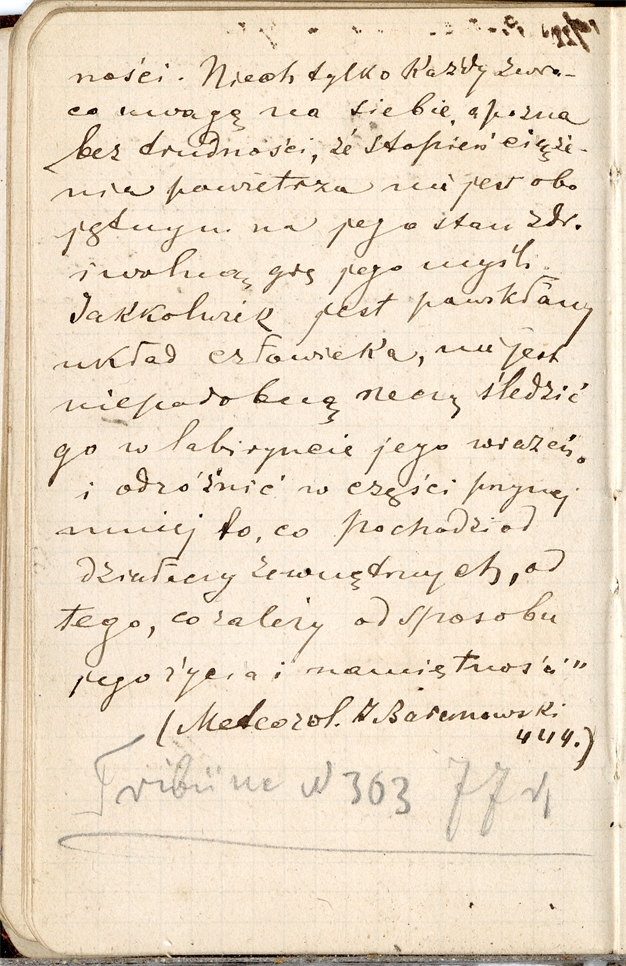 ności. Niech tylko każdy zwra-
ca uwagę na siebie, a pozna
bez trudności, że stopień ciąże-
nia powietrza nie jest obo
jętnym na jego stan zdr.
i wolną grę jego myśli.
Jakkolwiek jest powikłany
układ człowieka, nie jest
niepodobną rzeczą śledzić
go w labiryncie jego wrażeń,
i odróżnić w części przynaj
mniej to, co pochodzi od
działaczy zewnętrznych, od
tego, co zależy od sposobu
jego życia i namiętności"
(Meteorol. J Baranowski
444.)
Tribüne N 363 77 r,